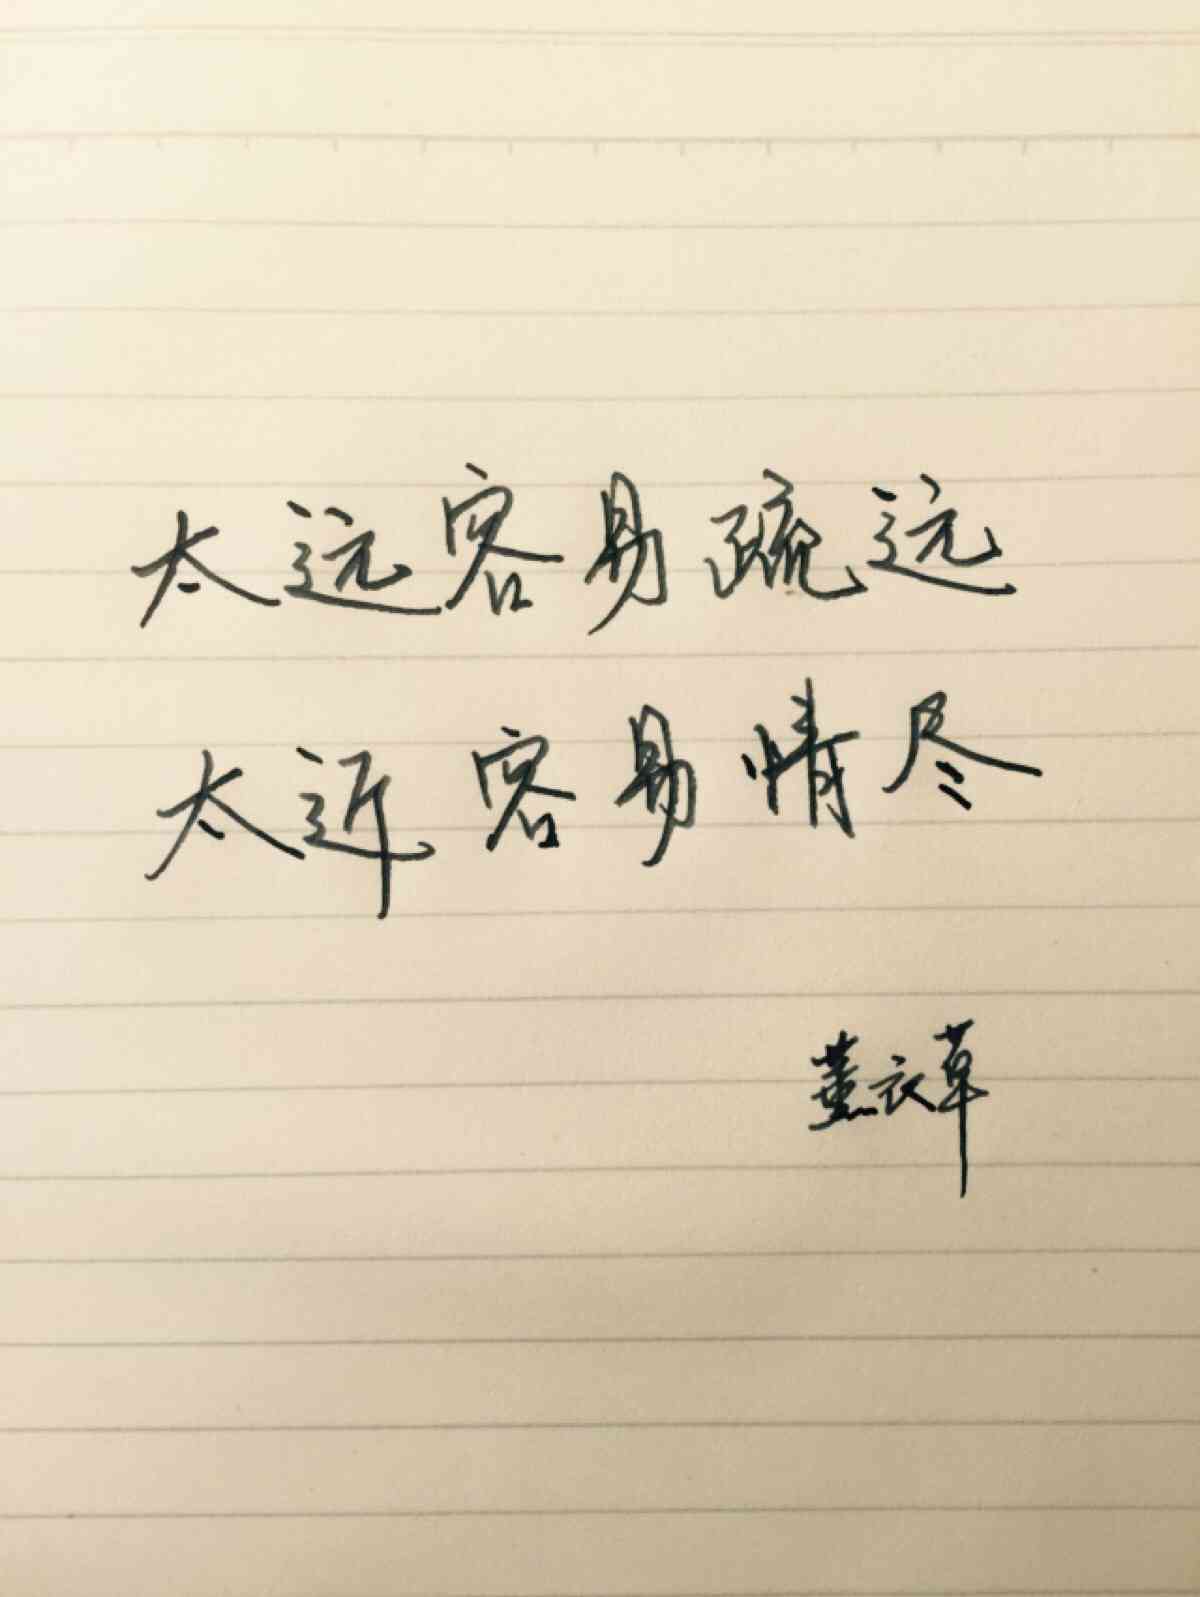 太远容易疏远
太近容易情尽
薰衣草